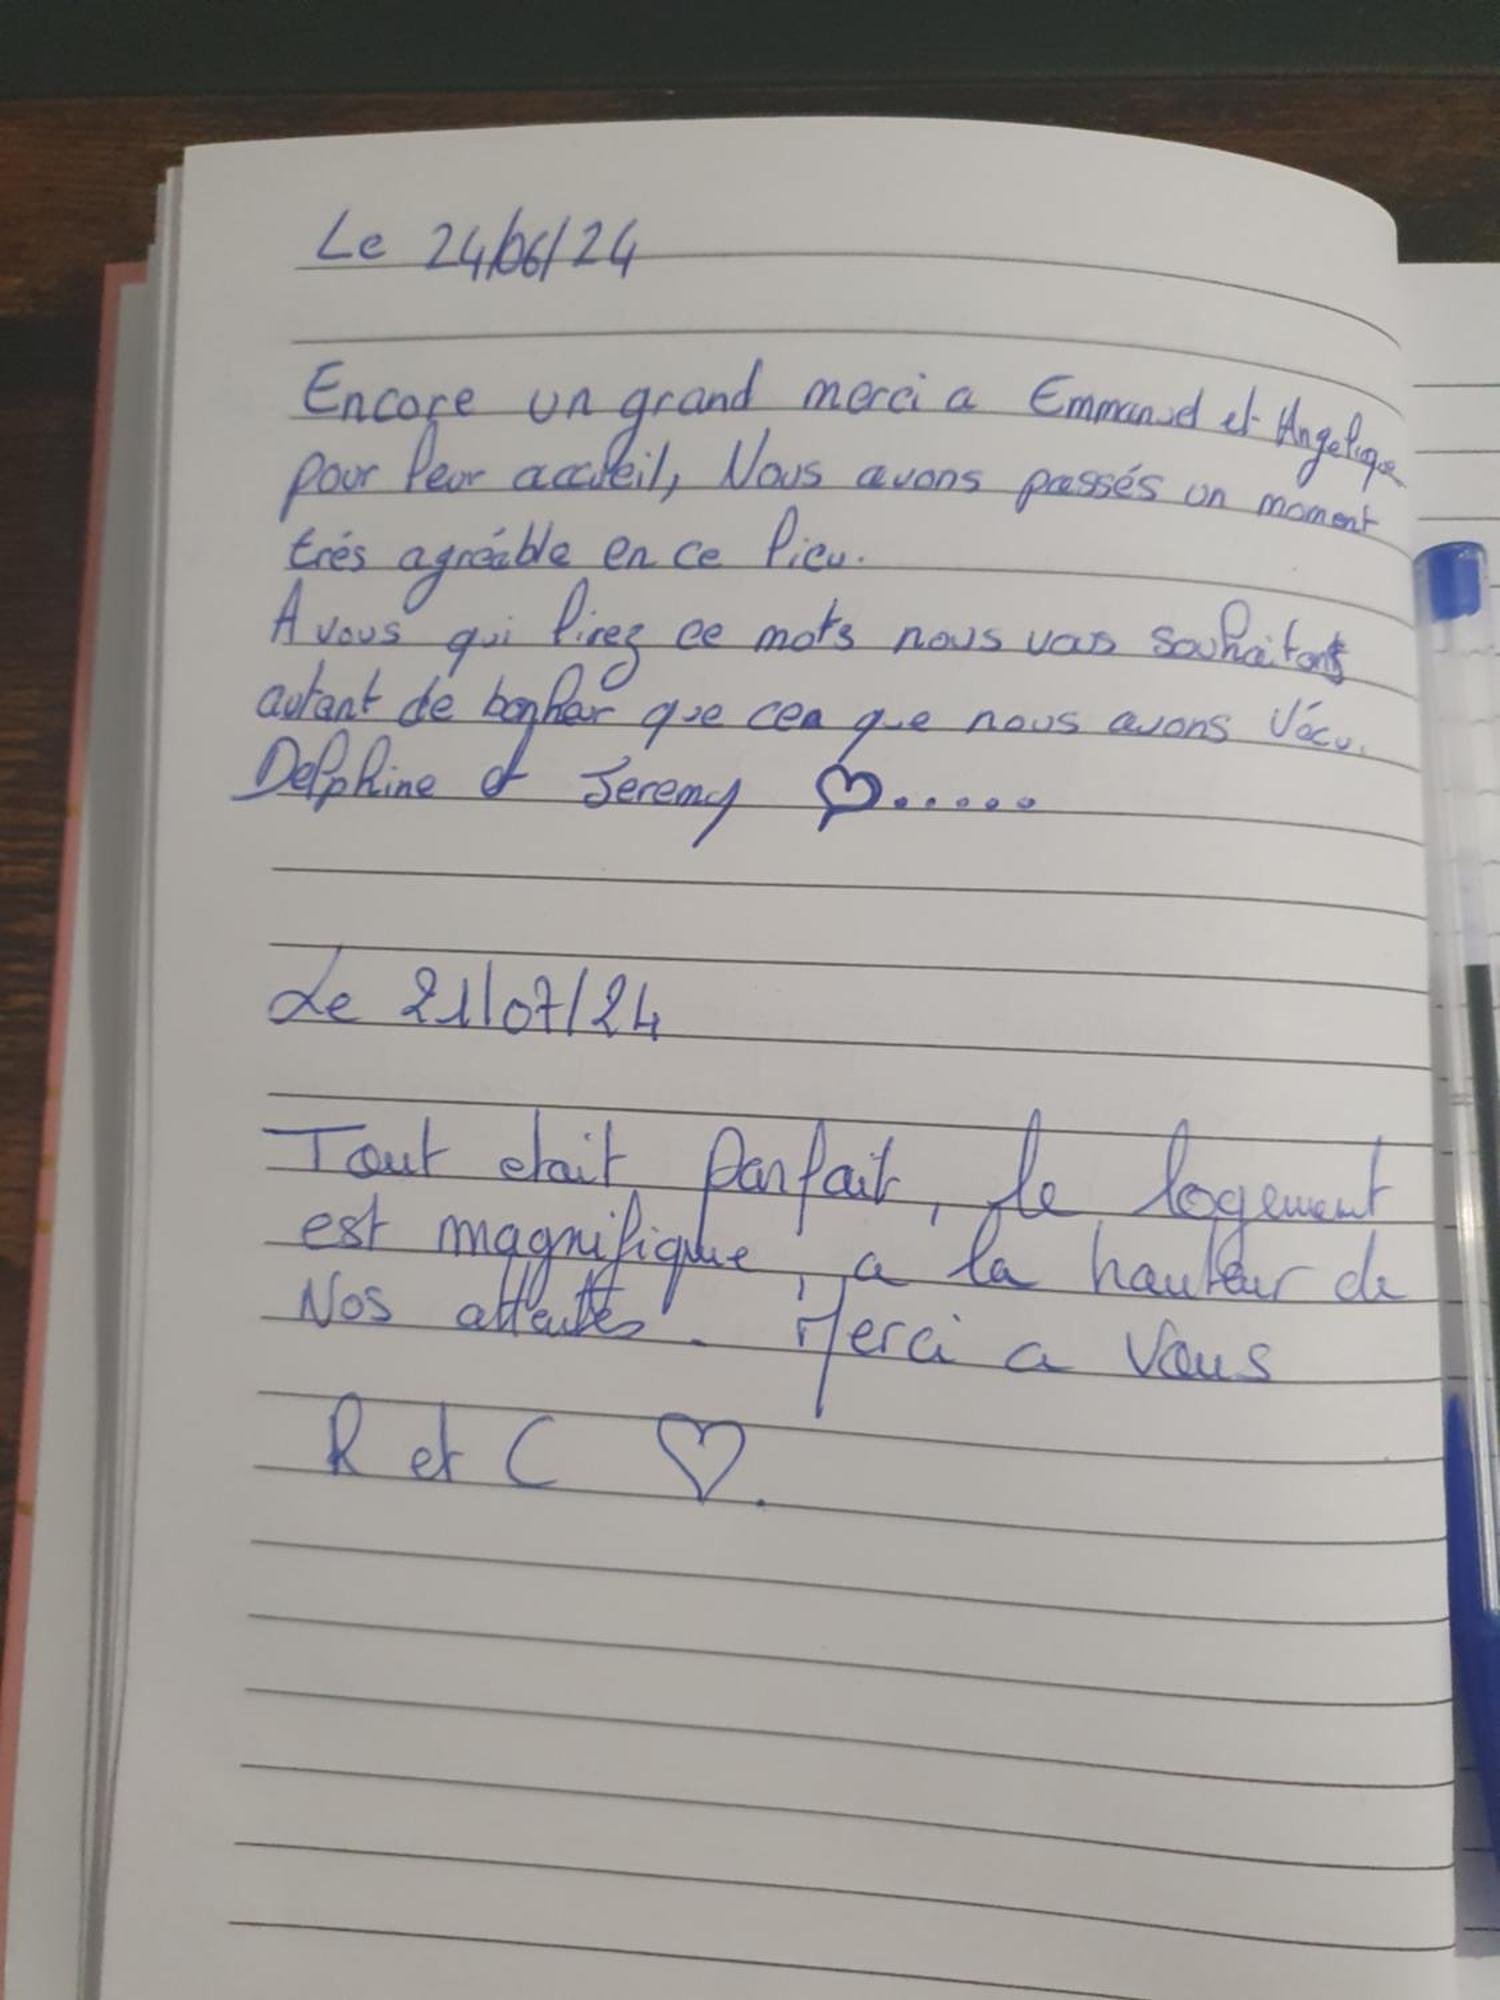 Le 24/06/24
Encore un grand merci a Emmanuel et Angelique
pour leur accueil, Nous avons passés un moment
trés agréable en ce lieu.
A vous qui lirez ce mots nous vous souhaitons
autant de bonheur que cea que nous avons vécu.
Delphine et Jeremy ♡.....
Le 21/07/24
Tout etait parfait, le logement
est magnifique, a la hauteur de
Nos attentes. Merci a vous
R et C ♡.